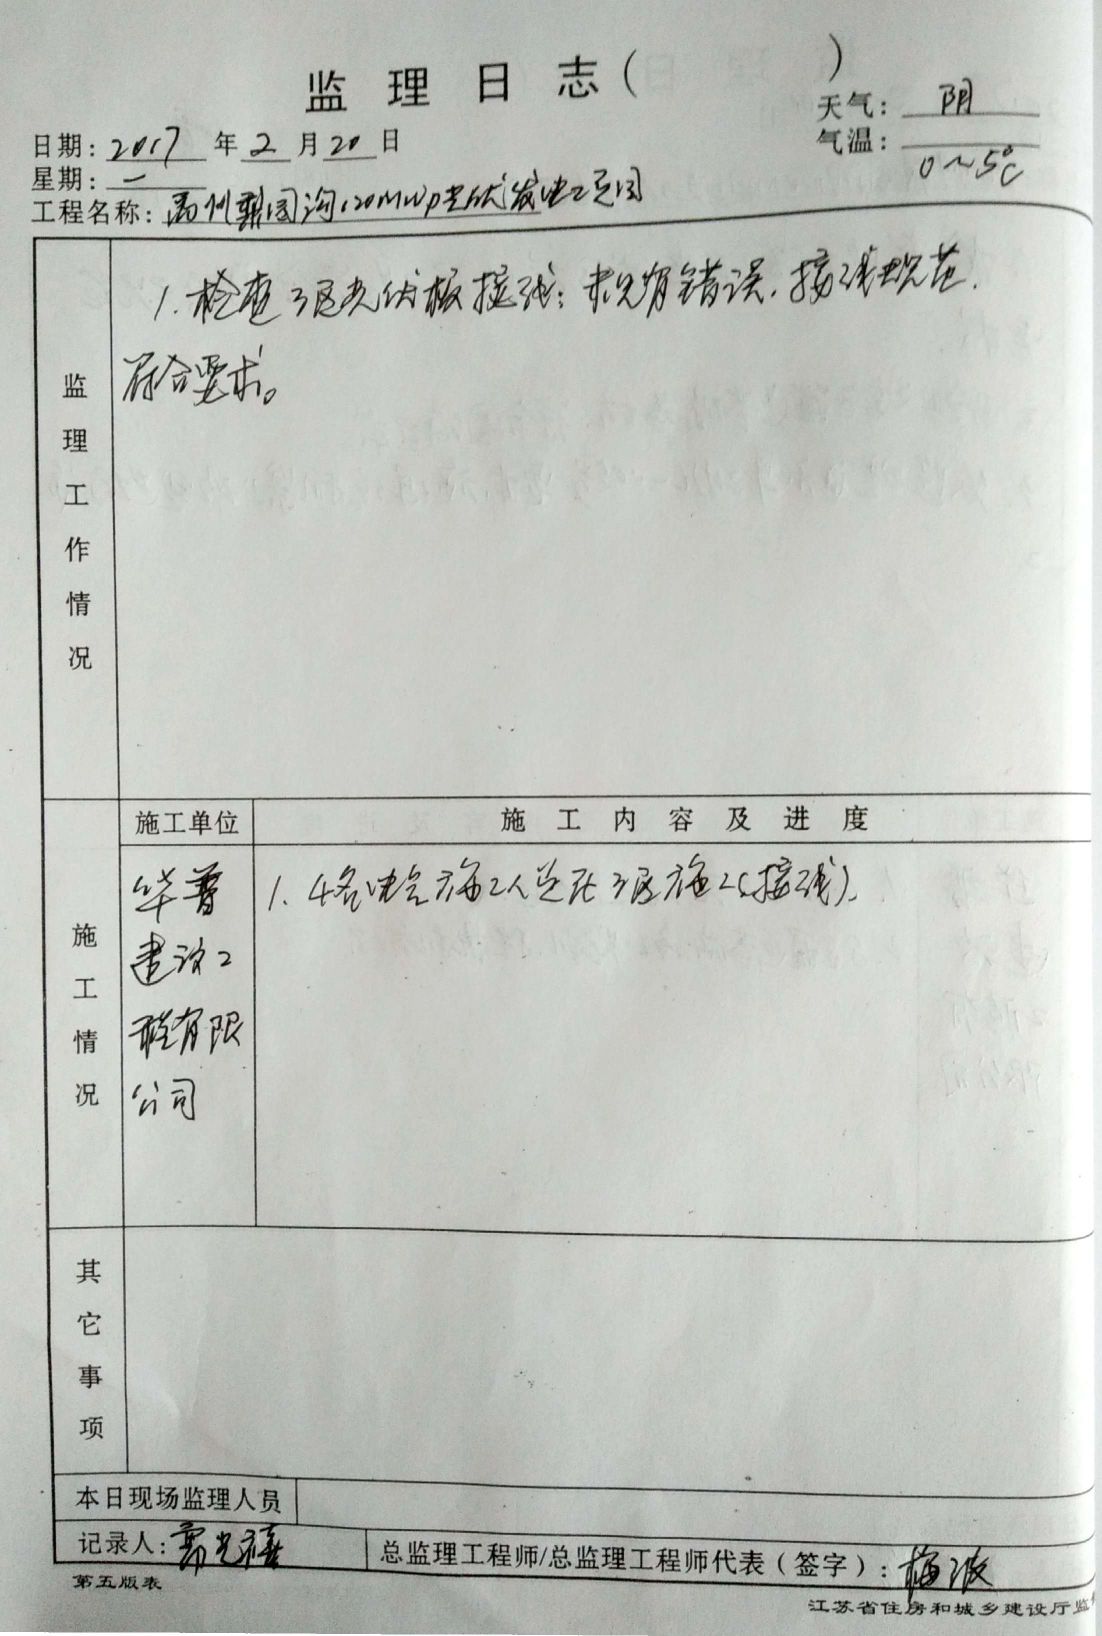 监理日志(　　)
天气: 阴
日期: 2017 年 2 月 20 日
气温: 0~5℃
星期: 一
工程名称: 禹州梨园沟120MWp光伏发电工程项目
监理工作情况
1. 检查3区光伏板接线: 未见有错误, 接线规范,
符合要求。
施工情况
施工单位
施工内容及进度
华普
建设工
程有限
公司
1. 4名电气施工人员在3区施工(接线)。
其它事项
本日现场监理人员
记录人:
总监理工程师/总监理工程师代表(签字): 梅波
第五版表
江苏省住房和城乡建设厅监